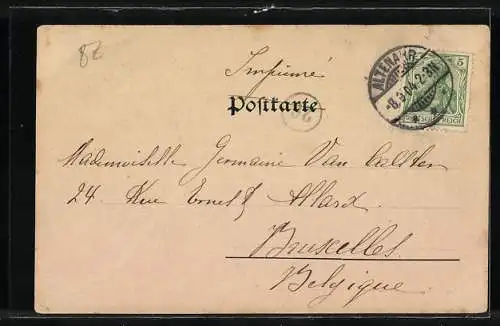 82
Imprimé
Postkarte
ALTENAHR
-8.9.04.2-3N.
5
REICH
Mademoiselle Germaine Van
24 Rue Ernest Allard
Bruxelles
Belgique